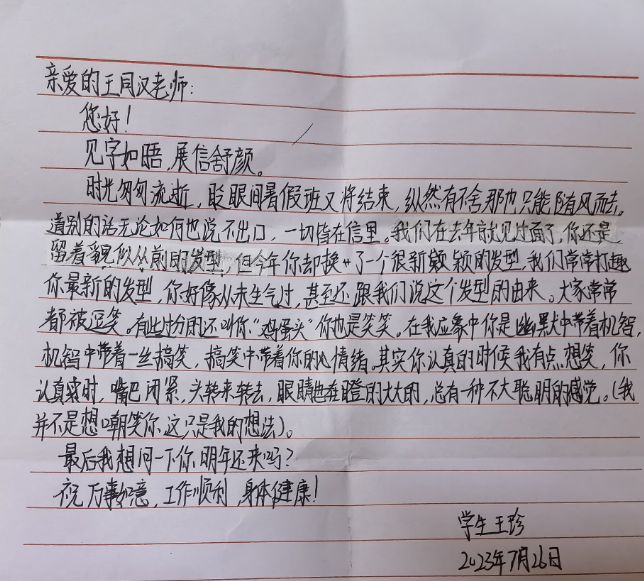 亲爱的王同汉老师：
您好！
见字如晤，展信舒颜。
时光匆匆流逝，眨眼间暑假班又将结束，纵然有不舍那也只能随风而去。
道别的话无论如何也说不出口，一切皆在信里。我们在去年就见过面了，你还是
留着貌似从前的发型，但今年你却换了一个很新颖的发型，我们常常打趣
你最新的发型，你好像从未生气过，甚至还跟我们说这个发型的由来。大家常常
都被逗笑。有些过分的还叫你“鸡蛋头”你也是笑笑。在我应象中你是幽默中带着机智，
机智中带着一丝搞笑，搞笑中带着你的情绪。其实你认真的时候我有点想笑，你
认真时，嘴巴闭紧，头转来转去，眼睛也在瞪的大大的，总有一种不大聪明的感觉。（我
并不是想嘲笑你，这只是我的想法）。
最后我想问一下你，明年还来吗？
祝万事如意，工作顺利 身体健康！
学生王珍
2023年7月26日